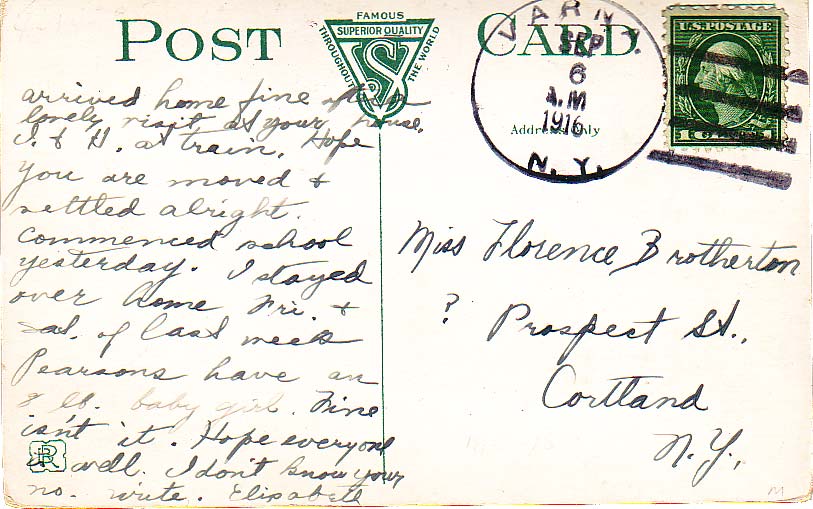 POST CARD
FAMOUS
SUPERIOR QUALITY
THROUGHOUT THE WORLD
VARNA.
SEP
6
A.M
1916
N. Y.
U.S. POSTAGE
1 CENT 1
Address Only
arrived home fine after
lovely visit at your house.
J. & H. at train. Hope
you are moved &
settled alright.
Commenced school
yesterday. I stayed
over home Fri. &
Sat. of last week
Pearsons have an
8 lb. baby girl. Fine
isn't it. Hope everyone
is well. I don't know your
no. write. Elisabeth
Miss Florence Brotherton
? Prospect St.,
Cortland
N.Y.,